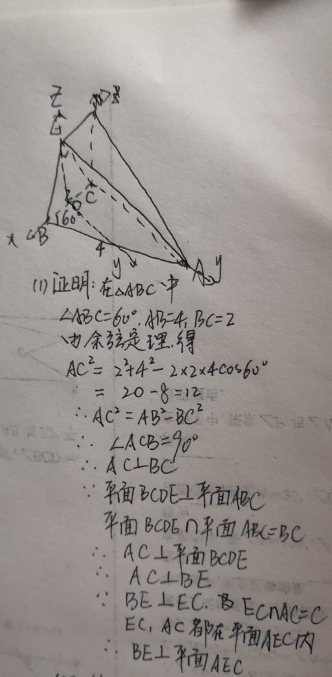 Z
E
D
C
O
x
B
60°
4
y
A
y
(1)证明:在△ABC中
∠ABC=60°,AB=4,BC=2
由余弦定理,得
AC²=2²+4²-2×2×4cos60°
=20-8=12
∴AC²=AB²-BC²
∴∠ACB=90°
∴AC⊥BC
∵平面BCDE⊥平面ABC
平面BCDE∩平面ABC=BC
∴AC⊥平面BCDE
∴AC⊥BE
∵BE⊥EC,且EC∩AC=C
EC,AC都在平面AEC内
∴BE⊥平面AEC